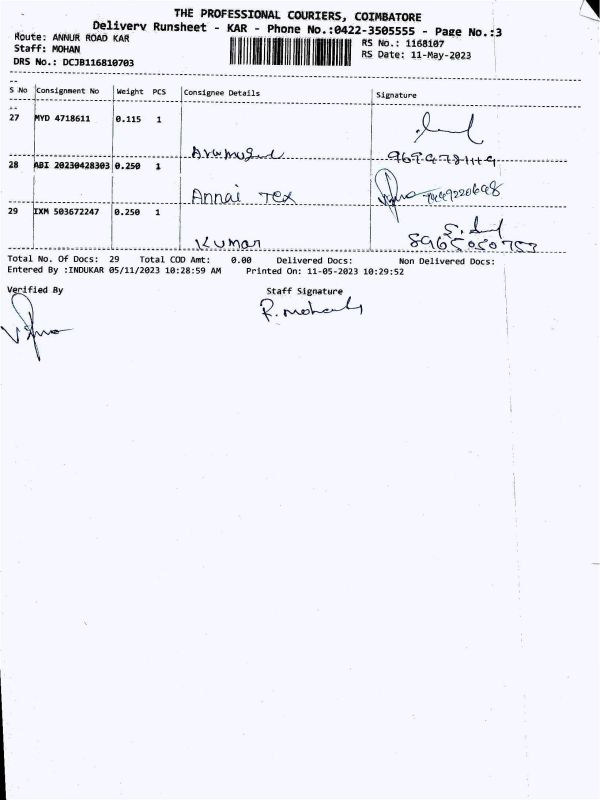 THE PROFESSIONAL COURIERS, COIMBATORE
Delivery Runsheet - KAR - Phone No.:0422-3505555 - Page No.:3
Route: ANNUR ROAD KAR
Staff: MOHAN
DRS No.: DCJB116810703
RS No.: 1168107
RS Date: 11-May-2023
S No Consignment No Weight PCS Consignee Details Signature
27 MYD 4718611 0.115 1
28 ABI 20230428303 0.250 1
Annai Tex
29 IXM 503672247 0.250 1
Kumar
Total No. Of Docs: 29 Total COD Amt: 0.00 Delivered Docs: Non Delivered Docs:
Entered By :INDUKAR 05/11/2023 10:28:59 AM Printed On: 11-05-2023 10:29:52
Verified By Staff Signature